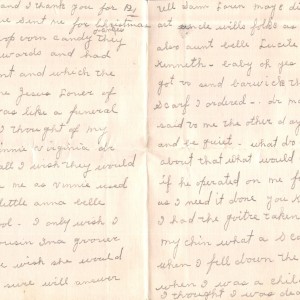 and I thank you for my
sent me for Christmas
of corn candy they
oranges
wards and had
nt and which the
me Jesus Lover of
was like a funeral
I thought of my
nnie Virginia or
all I wish they would
me as Vinnie used
little anna belle
ol. I only wish I
ousin Ina grover
e wish she would
sure will answer
tell Sam Loren mage
art uncle wills folks as
also aunt belle Lucile
Kenneth. baby oh yes
got to send barwick the
scarf I ordered. dr m
said to me the other day
and be quiet. what do
about that what would
if he operated on me fo
as I need it done you k
I had the goitre taken
my chin what a sca
when I fell down the
when I was a chil
I thought I was dea